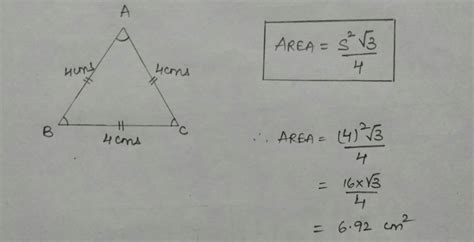 A
4cms 4cms
B C
4cms
AREA = S²√3/4
∴ AREA = (4)²√3/4
= 16×√3/4
= 6.92 cm²